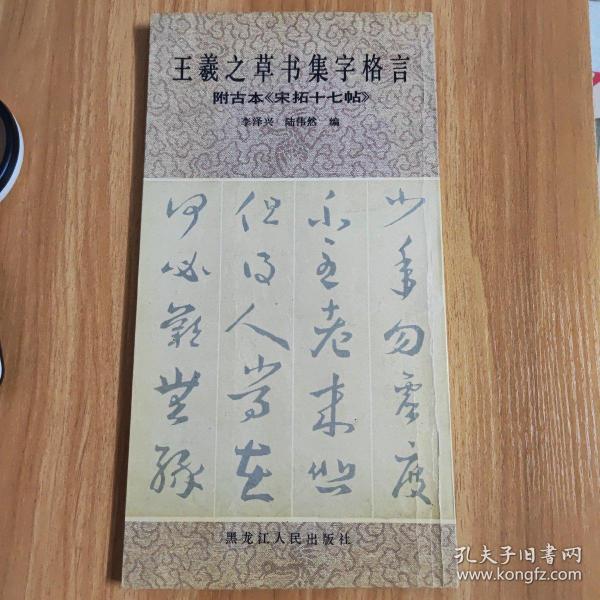 王羲之草书集字格言
附古本《宋拓十七帖》
李泽兴 陆伟然 编
少年勿虚度
不至老来
但得人常在
何必歎無緣
黑龙江人民出版社
孔夫子旧书网
www.kongfz.com